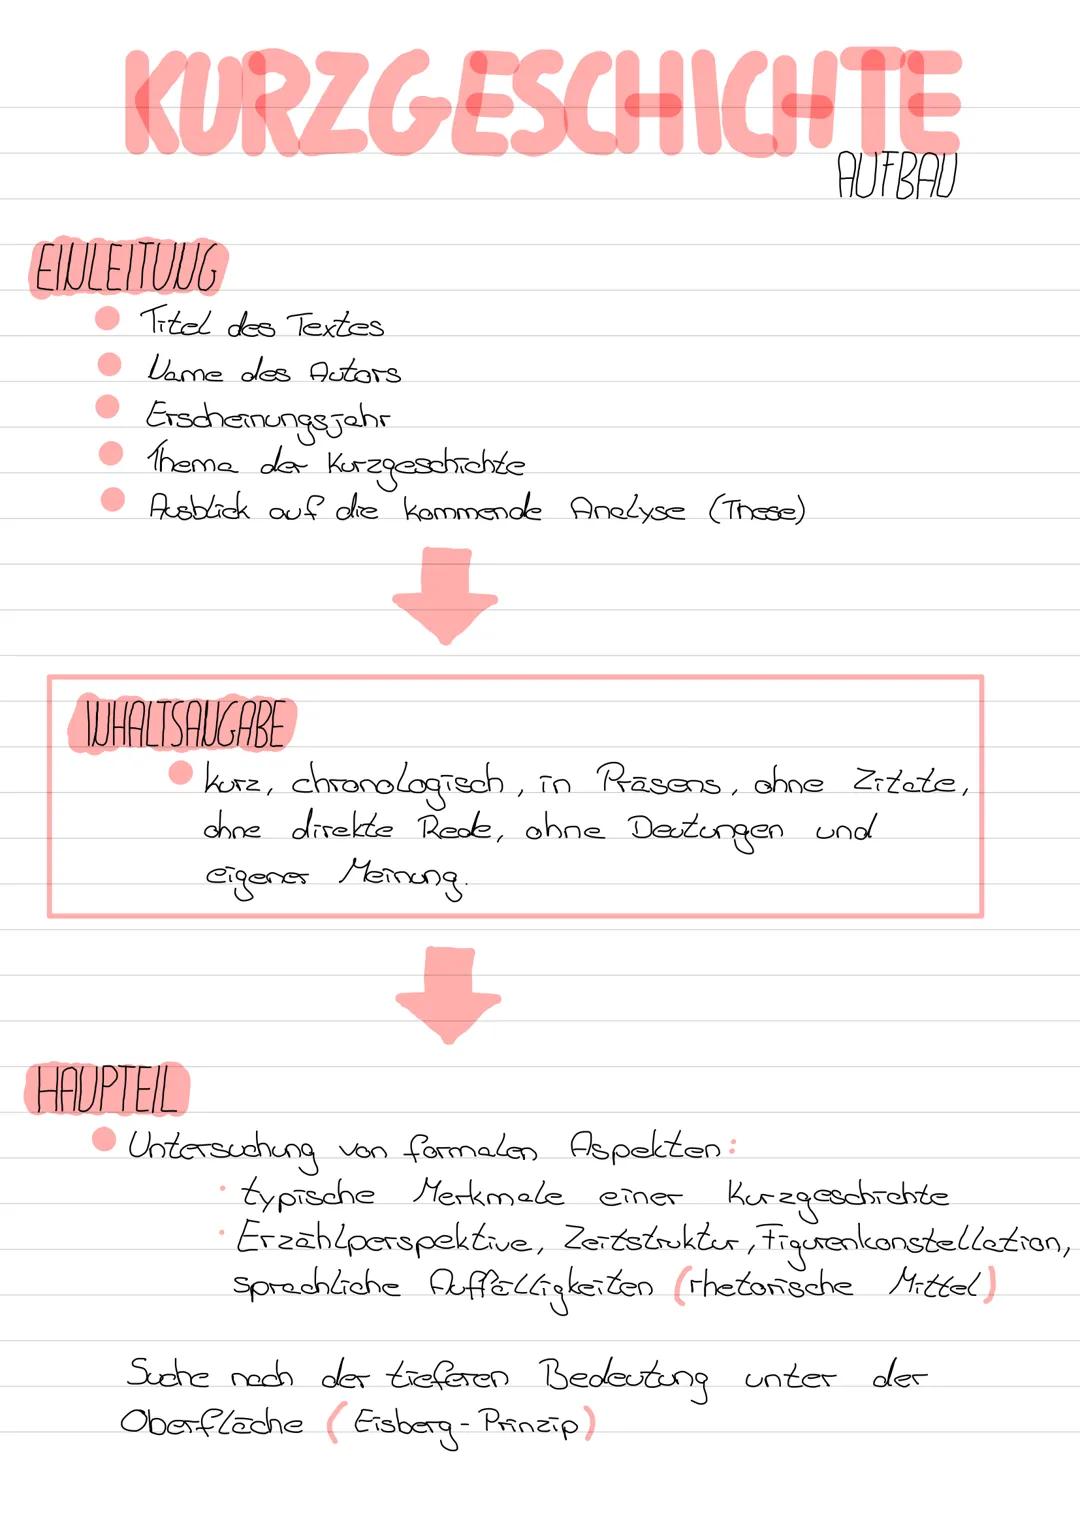 KURZGESCHICHTE
AUFBAU
EINLEITUNG
Titel des Textes
Name des Autors
Erscheinungsjahr
Thema der Kurzgeschichte
Ausblick auf die kommende Analyse (These)
INHALTSANGABE
kurz, chronologisch, in Präsens, ohne Zitate,
ohne direkte Rede, ohne Deutungen und
eigener Meinung.
HAUPTEIL
Untersuchung von formalen Aspekten:
· typische Merkmale einer Kurzgeschichte
· Erzählperspektive, Zeitstruktur, Figurenkonstellation,
sprachliche Auffälligkeiten (rhetorische Mittel)
Suche nach der tieferen Bedeutung unter der
Oberfläche (Eisberg-Prinzip)